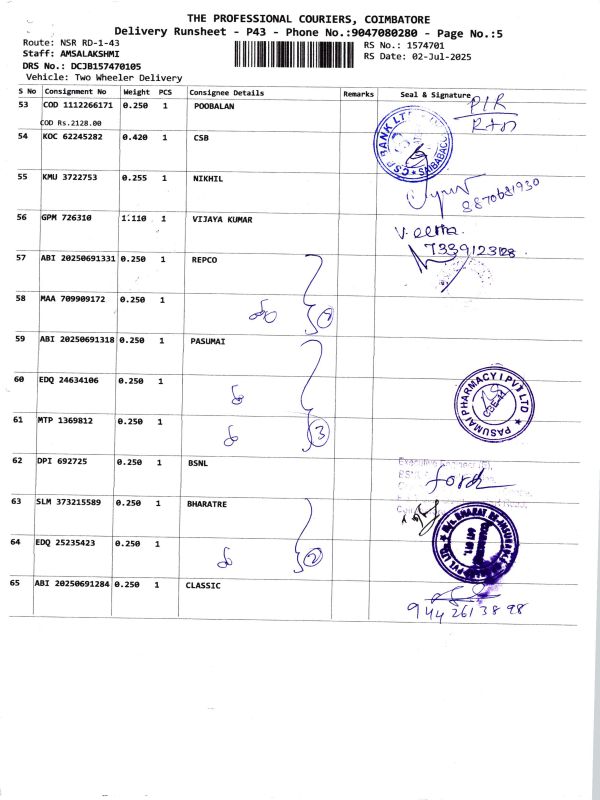 THE PROFESSIONAL COURIERS, COIMBATORE
Delivery Runsheet - P43 - Phone No.:9047080280 - Page No.:5
Route: NSR RD-1-43
RS No.: 1574701
Staff: AMSALAKSHMI
RS Date: 02-Jul-2025
DRS No.: DCJB157470105
Vehicle: Two Wheeler Delivery
S No Consignment No Weight PCS Consignee Details Remarks Seal & Signature
53 COD 1112266171 0.250 1 POOBALAN
COD Rs.2128.00
54 KOC 62245282 0.420 1 CSB
55 KMU 3722753 0.255 1 NIKHIL
56 GPM 726310 1.110 1 VIJAYA KUMAR
Veena
57 ABI 20250691331 0.250 1 REPCO
58 MAA 709909172 0.250 1
2
59 ABI 20250691318 0.250 1 PASUMAI
60 EDQ 24634106 0.250 1
PASUMAI PHARMACY I PVT LTD
61 MTP 1369812 0.250 1
3
62 DPI 692725 0.250 1 BSNL
63 SLM 373215589 0.250 1 BHARATRE
64 EDQ 25235423 0.250 1
2
65 ABI 20250691284 0.250 1 CLASSIC
9442613898